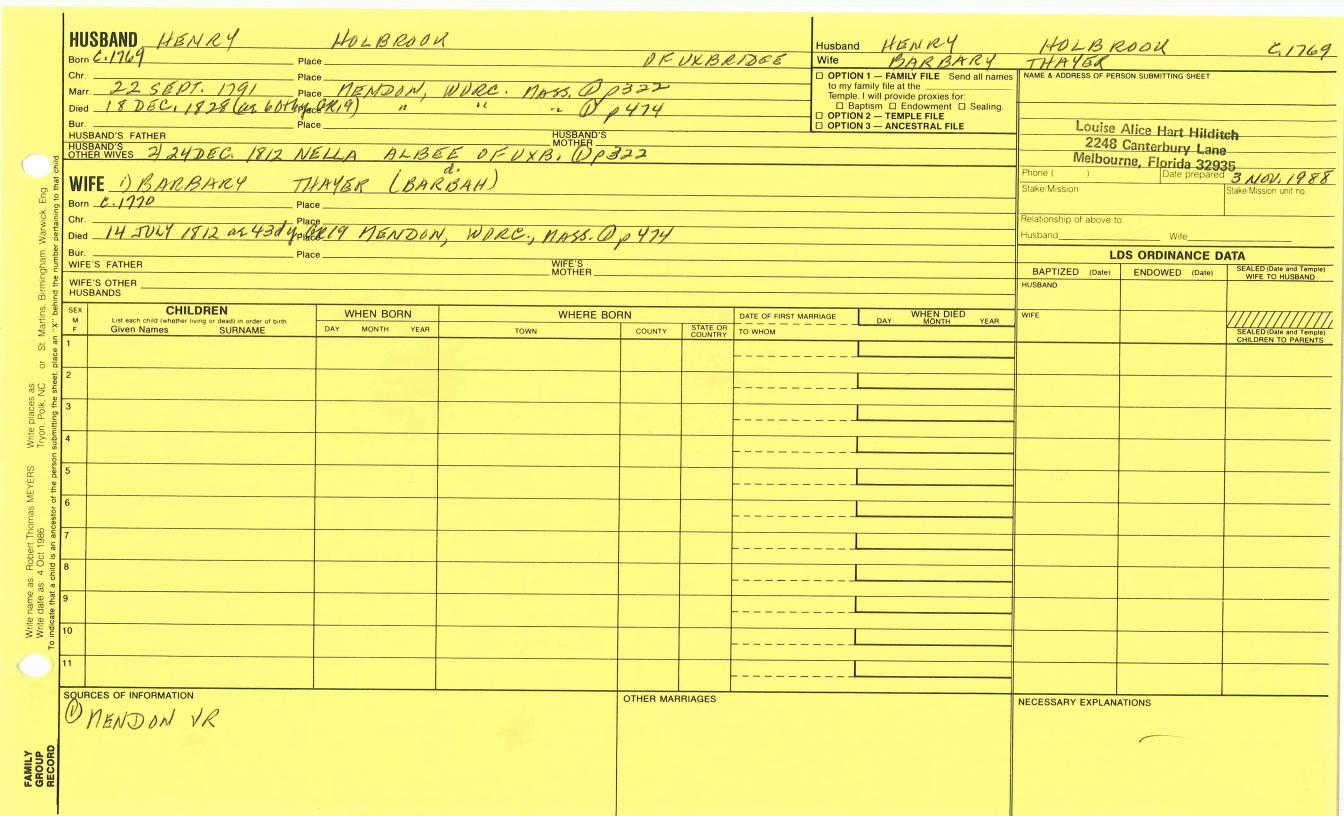 HUSBAND HENRY HOLBROOK
Born C.1769 Place OF UXBRIDGE
Chr. Place
Marr. 22 SEPT. 1791 Place MENDON, WORC. MASS. ① p322
Died 18 DEC. 1828 (as 60thy, GR19) Place " " " ① p474
Bur. Place
HUSBAND'S FATHER HUSBAND'S MOTHER
HUSBAND'S OTHER WIVES 2) 24 DEC. 1812 NELLA ALBEE OF UXB. ① p322
WIFE 1) BARBARY THAYER (BARBAH)
Born C.1770 Place
Chr. Place
Died 14 JULY 1812 as 43d y. GR19 Place MENDON, WORC., MASS. ① p474
Bur. Place
WIFE'S FATHER WIFE'S MOTHER
WIFE'S OTHER HUSBANDS
Husband HENRY HOLBROOK C.1769
Wife BARBARY THAYER
☐ OPTION 1 — FAMILY FILE Send all names
to my family file at the
Temple. I will provide proxies for:
☐ Baptism ☐ Endowment ☐ Sealing.
☐ OPTION 2 — TEMPLE FILE
☐ OPTION 3 — ANCESTRAL FILE
NAME & ADDRESS OF PERSON SUBMITTING SHEET
Louise Alice Hart Hilditch
2248 Canterbury Lane
Melbourne, Florida 32935
Phone ( ) Date prepared 3 NOV. 1988
Stake/Mission Stake/Mission unit no.
Relationship of above to:
Husband Wife
LDS ORDINANCE DATA
BAPTIZED (Date) ENDOWED (Date) SEALED (Date and Temple) WIFE TO HUSBAND
HUSBAND
WIFE
SEALED (Date and Temple) CHILDREN TO PARENTS
SEX M F
CHILDREN
List each child (whether living or dead) in order of birth
Given Names SURNAME
WHEN BORN
DAY MONTH YEAR
WHERE BORN
TOWN COUNTY STATE OR COUNTRY
DATE OF FIRST MARRIAGE
TO WHOM
WHEN DIED
DAY MONTH YEAR
1
2
3
4
5
6
7
8
9
10
11
SOURCES OF INFORMATION
① MENDON VR
OTHER MARRIAGES
NECESSARY EXPLANATIONS
Write name as: Robert Thomas MEYERS Write places as: Tryon, Polk, NC or St. Martins, Birmingham, Warwick, Eng
Write date as: 4 Oct 1986
To indicate that a child is an ancestor of the person submitting the sheet, place an "X" behind the number pertaining to that child
FAMILY GROUP RECORD